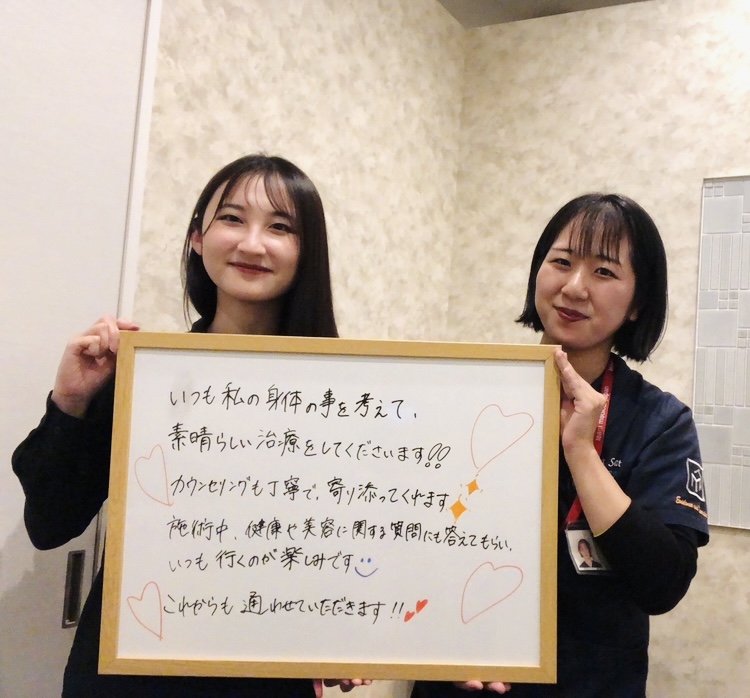 いつも私の身体の事を考えて、
素晴らしい治療をしてくださいます!!
カウンセリングも丁寧で、寄り添ってくれます
施術中、健康や美容に関する質問にも答えてもらい、
いつも行くのが楽しみです
これからも通わせていただきます!!